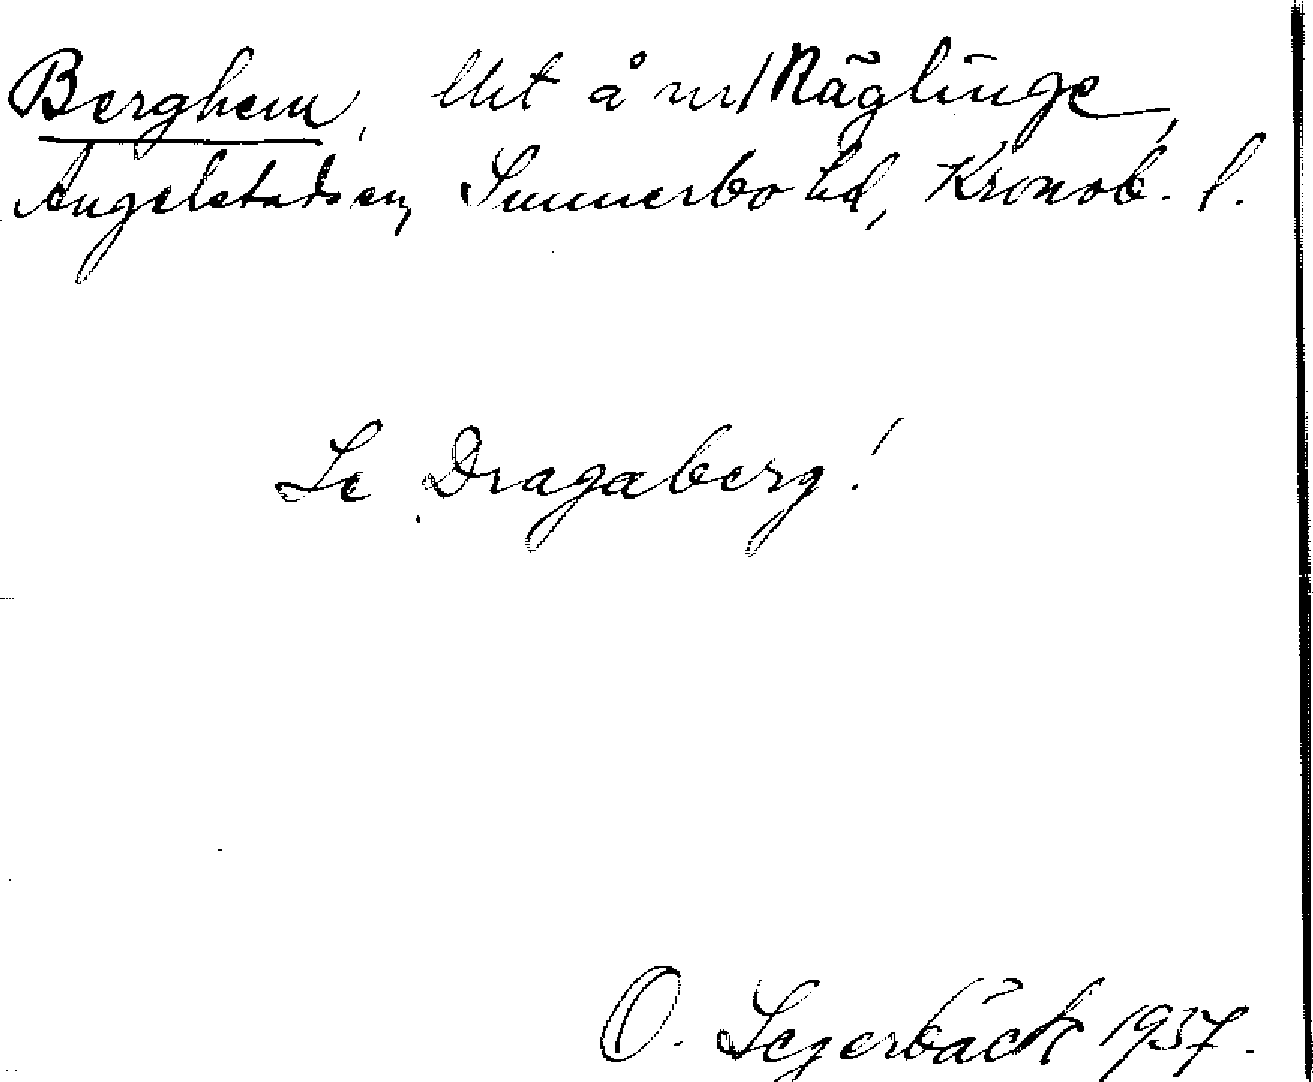 Berghem, lht å nr 1 Räglinge,
Angelstads sn, Sunnerbo hd, Kronob. l.
Se Dragaberg!
O. Segerbäck 1937.